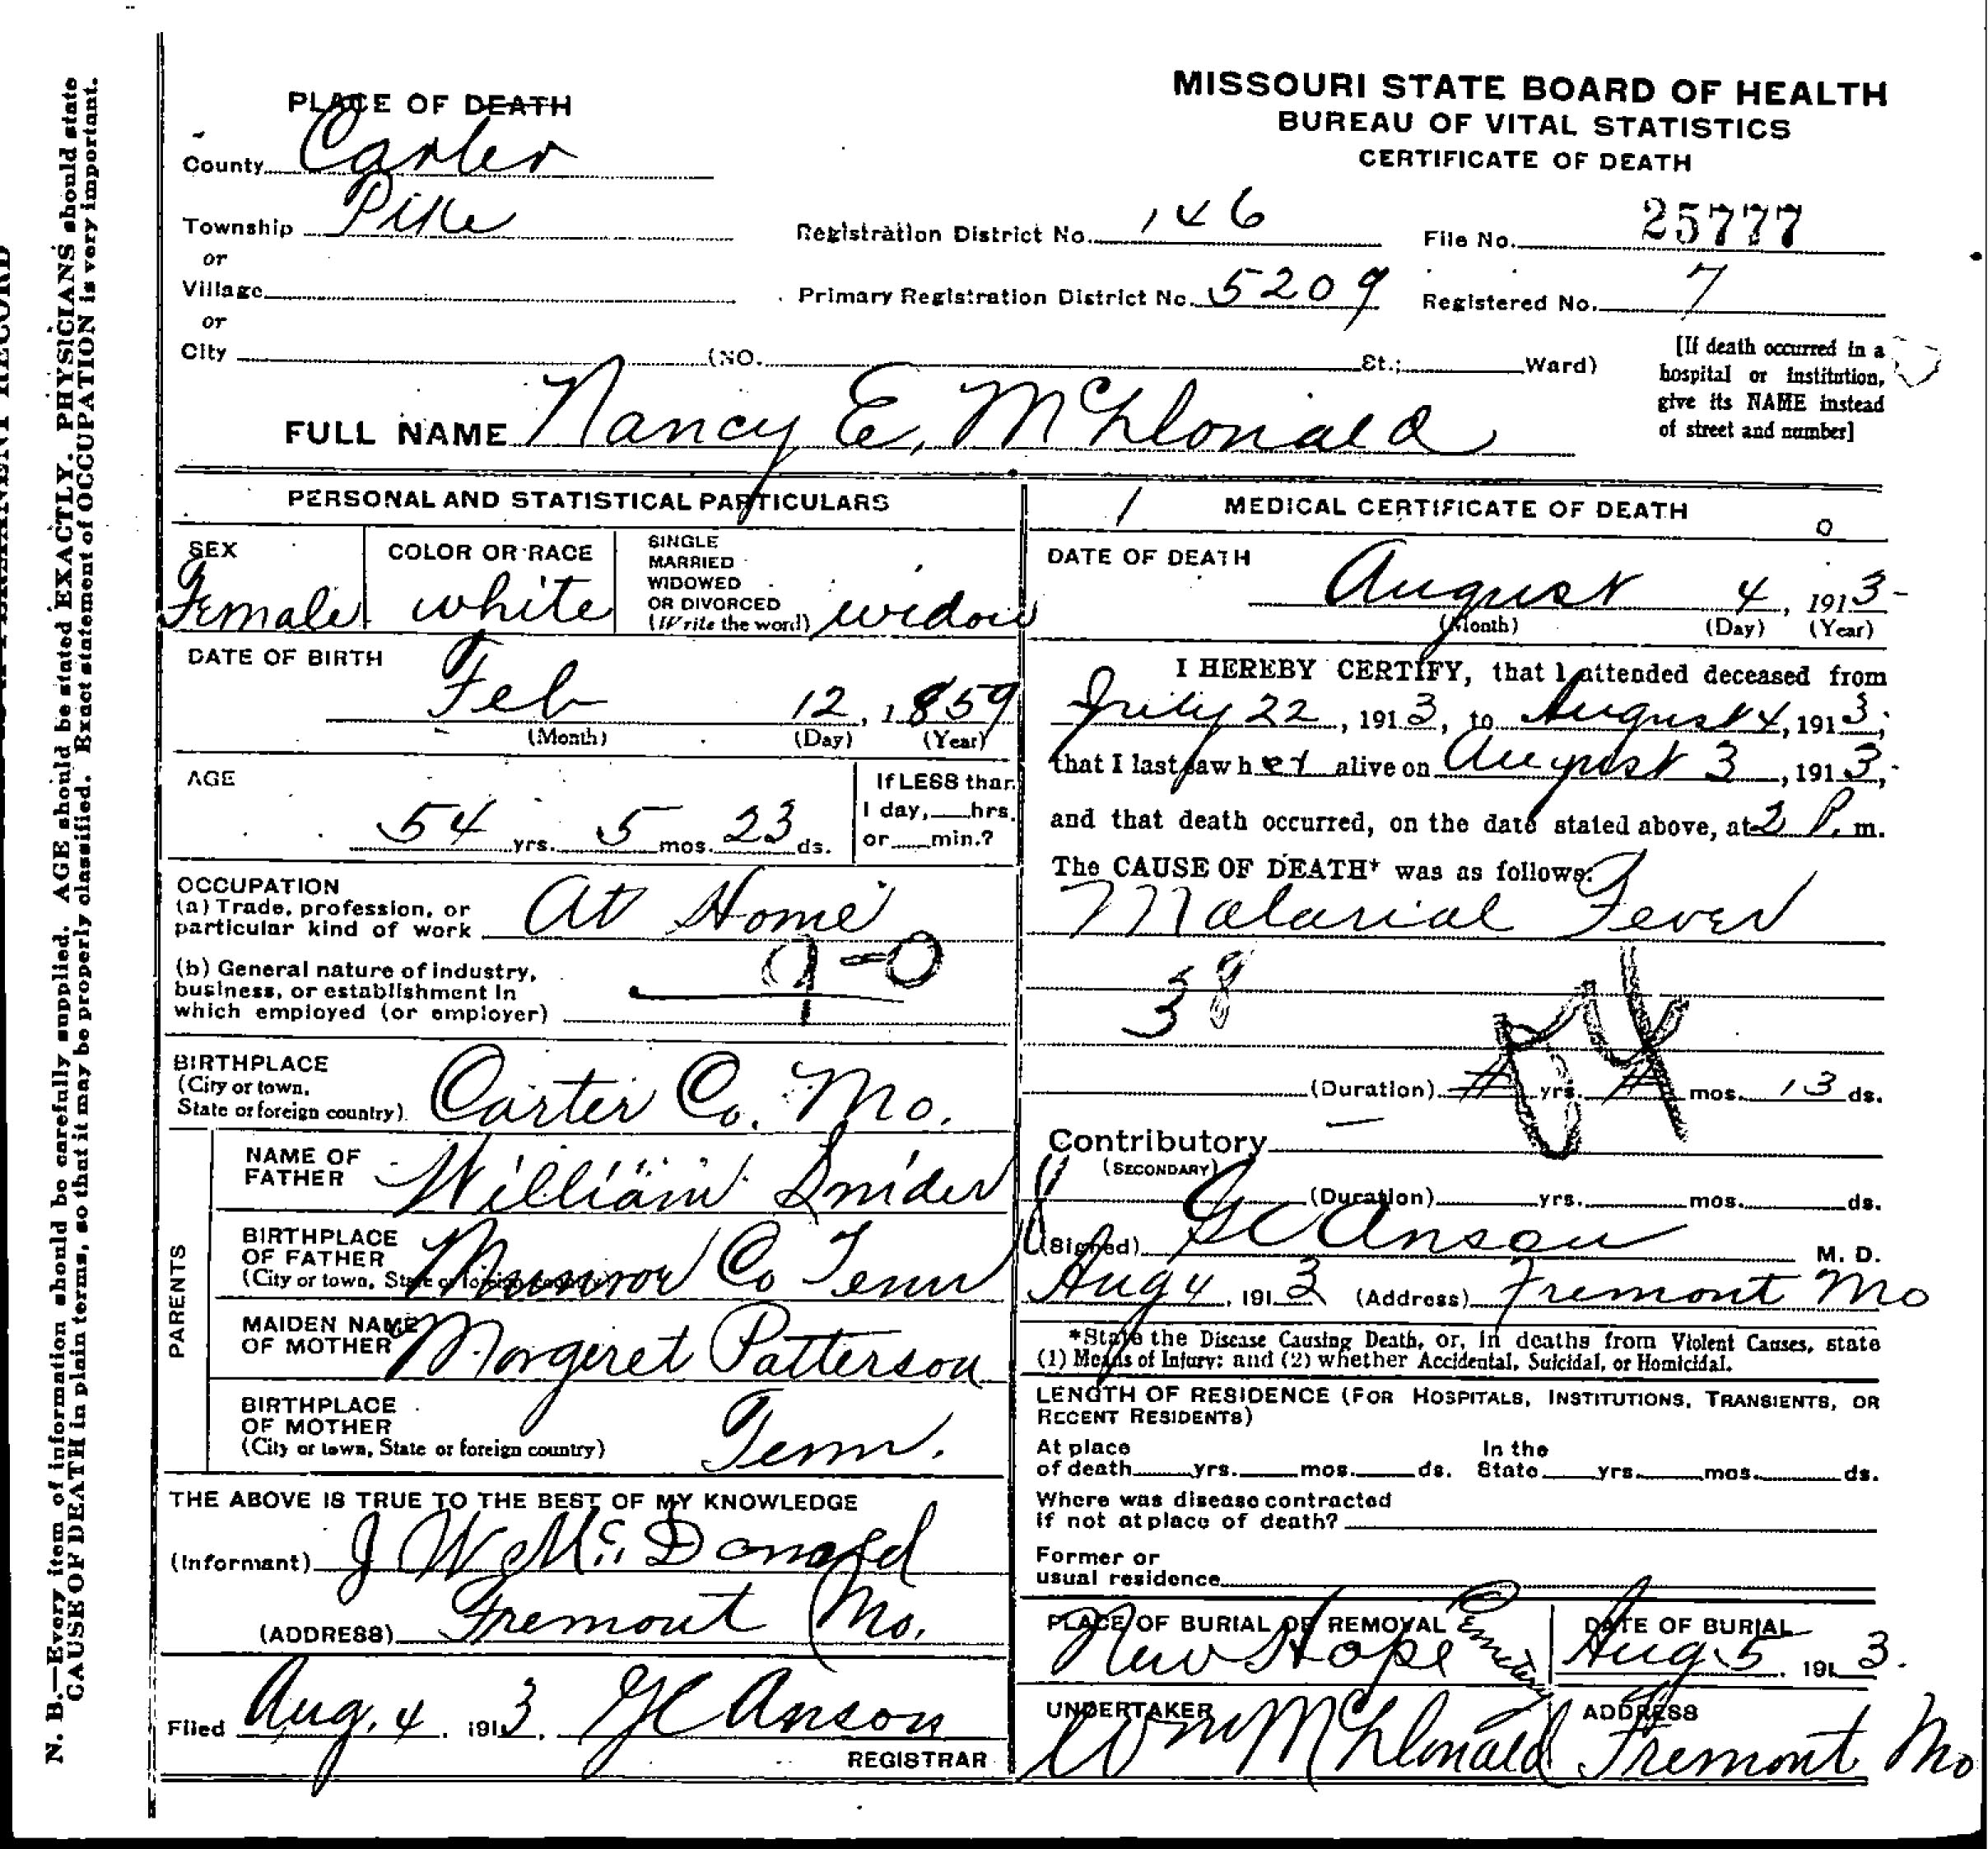 MISSOURI STATE BOARD OF HEALTH
BUREAU OF VITAL STATISTICS
CERTIFICATE OF DEATH
PLACE OF DEATH
County Carter
Township Pike
or
Village
or
City (NO. St.; Ward)
Registration District No. 146 File No. 25777
Primary Registration District No. 5209 Registered No. 7
[If death occurred in a
hospital or institution,
give its NAME instead
of street and number]
FULL NAME Nancy E. McDonald
PERSONAL AND STATISTICAL PARTICULARS
SEX
Female
COLOR OR RACE
white
SINGLE
MARRIED
WIDOWED
OR DIVORCED
(Write the word) widow
DATE OF BIRTH
Feb 12, 1859
(Month) (Day) (Year)
AGE
54 yrs. 5 mos. 23 ds.
If LESS than
1 day, hrs.
or min.?
OCCUPATION
(a) Trade, profession, or
particular kind of work At Home
(b) General nature of industry,
business, or establishment in
which employed (or employer)
9-0
BIRTHPLACE
(City or town,
State or foreign country) Carter Co. Mo.
PARENTS
NAME OF
FATHER William Snider
BIRTHPLACE
OF FATHER
(City or town, State or foreign country) Munroe Co Tenn
MAIDEN NAME
OF MOTHER Morgeret Patterson
BIRTHPLACE
OF MOTHER
(City or town, State or foreign country) Tenn.
THE ABOVE IS TRUE TO THE BEST OF MY KNOWLEDGE
(Informant) J W McDonald
(ADDRESS) Fremont Mo.
Filed Aug. 4, 1913, G C Anson
REGISTRAR
1 MEDICAL CERTIFICATE OF DEATH 0
DATE OF DEATH
August 4, 1913
(Month) (Day) (Year)
I HEREBY CERTIFY, that I attended deceased from
July 22, 1913, to August 4, 1913,
that I last saw her alive on August 3, 1913,
and that death occurred, on the date stated above, at 2 P. m.
The CAUSE OF DEATH* was as follows:
Malarial Fever
38
(Duration) yrs. mos. 13 ds.
Contributory
(SECONDARY)
(Duration) yrs. mos. ds.
(Signed) G C Anson M. D.
Aug 4, 1913 (Address) Fremont Mo
*State the Disease Causing Death, or, in deaths from Violent Causes, state
(1) Means of Injury; and (2) whether Accidental, Suicidal, or Homicidal.
LENGTH OF RESIDENCE (FOR HOSPITALS, INSTITUTIONS, TRANSIENTS, OR
RECENT RESIDENTS)
At place
of death yrs. mos. ds.
In the
State yrs. mos. ds.
Where was disease contracted
if not at place of death?
Former or
usual residence
PLACE OF BURIAL OR REMOVAL
New Hope Cemetery
DATE OF BURIAL
Aug. 5, 1913.
UNDERTAKER
Wm McDonald
ADDRESS
Fremont Mo
N. B.—Every item of information should be carefully supplied. AGE should be stated EXACTLY. PHYSICIANS should state
CAUSE OF DEATH in plain terms, so that it may be properly classified. Exact statement of OCCUPATION is very important.